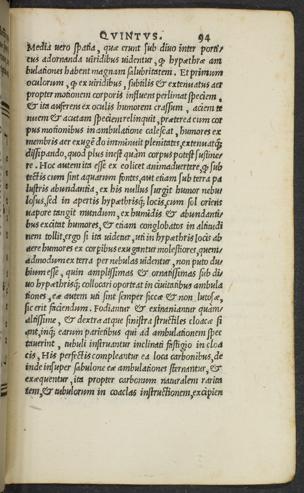 QVINTVS. 94
Media uero spatia, quæ erunt sub diuo inter porti-
cus adornanda uiridibus uidentur, ꝙ hypæthræ am
bulationes habent magnam salubritatem. Et primum
oculorum, ꝙ ex uiridibus, subtilis & extenuatus aer
propter motionem corporis influens perlimat speciem,
& ita auferens ex oculis humorem crassum, aciem te
nuem & acutam speciem relinquit, præterea cum cor
pus motionibus in ambulatione calescat, humores ex
membris aer exugẽdo imminuit plenitates, extenuatq;
dissipando, quod plus inest quàm corpus potest sustine
re. Hoc autem ita esse ex eo licet animaduertere, ꝙ sub
tectis cum sint aquarum fontes, aut etiam sub terra pa
lustris abundantia, ex his nullus surgit humor nebu
losus, sed in apertis hypæthrisq; locis, cum sol oriens
uapore tangit mundum, ex humidis & abundantis
bus excitat humores, & etiam conglobatos in altitudi
nem tollit, ergo si ita uidetur, uti in hypæthris locis ab
aere humores ex corpibus exugantur molestiores, quem
admodum ex terra per nebulas uidentur, non puto du
bium esse, quin amplissimas & ornatissimas sub di
uo hypæthrisq; collocari oporteat in ciuitatibus ambula
tiones, eæ autem uti sint semper siccæ & non lutosæ,
sic erit faciendum. Fodiantur & exinaniantur quàm
altissime, & dextra atque sinistra structiles cloacæ fi
ant, inq; earum parietibus qui ad ambulationem spec
tauerint, tubuli instruantur inclinati fastigio in cloa
cis, His perfectis compleantur ea loca carbonibus, de
inde insuper sabulone eæ ambulationes sternantur, &
exæquentur, ita propter carbonum naturalem rarita
tem, & tubulorum in coaclas instructionem, excipien